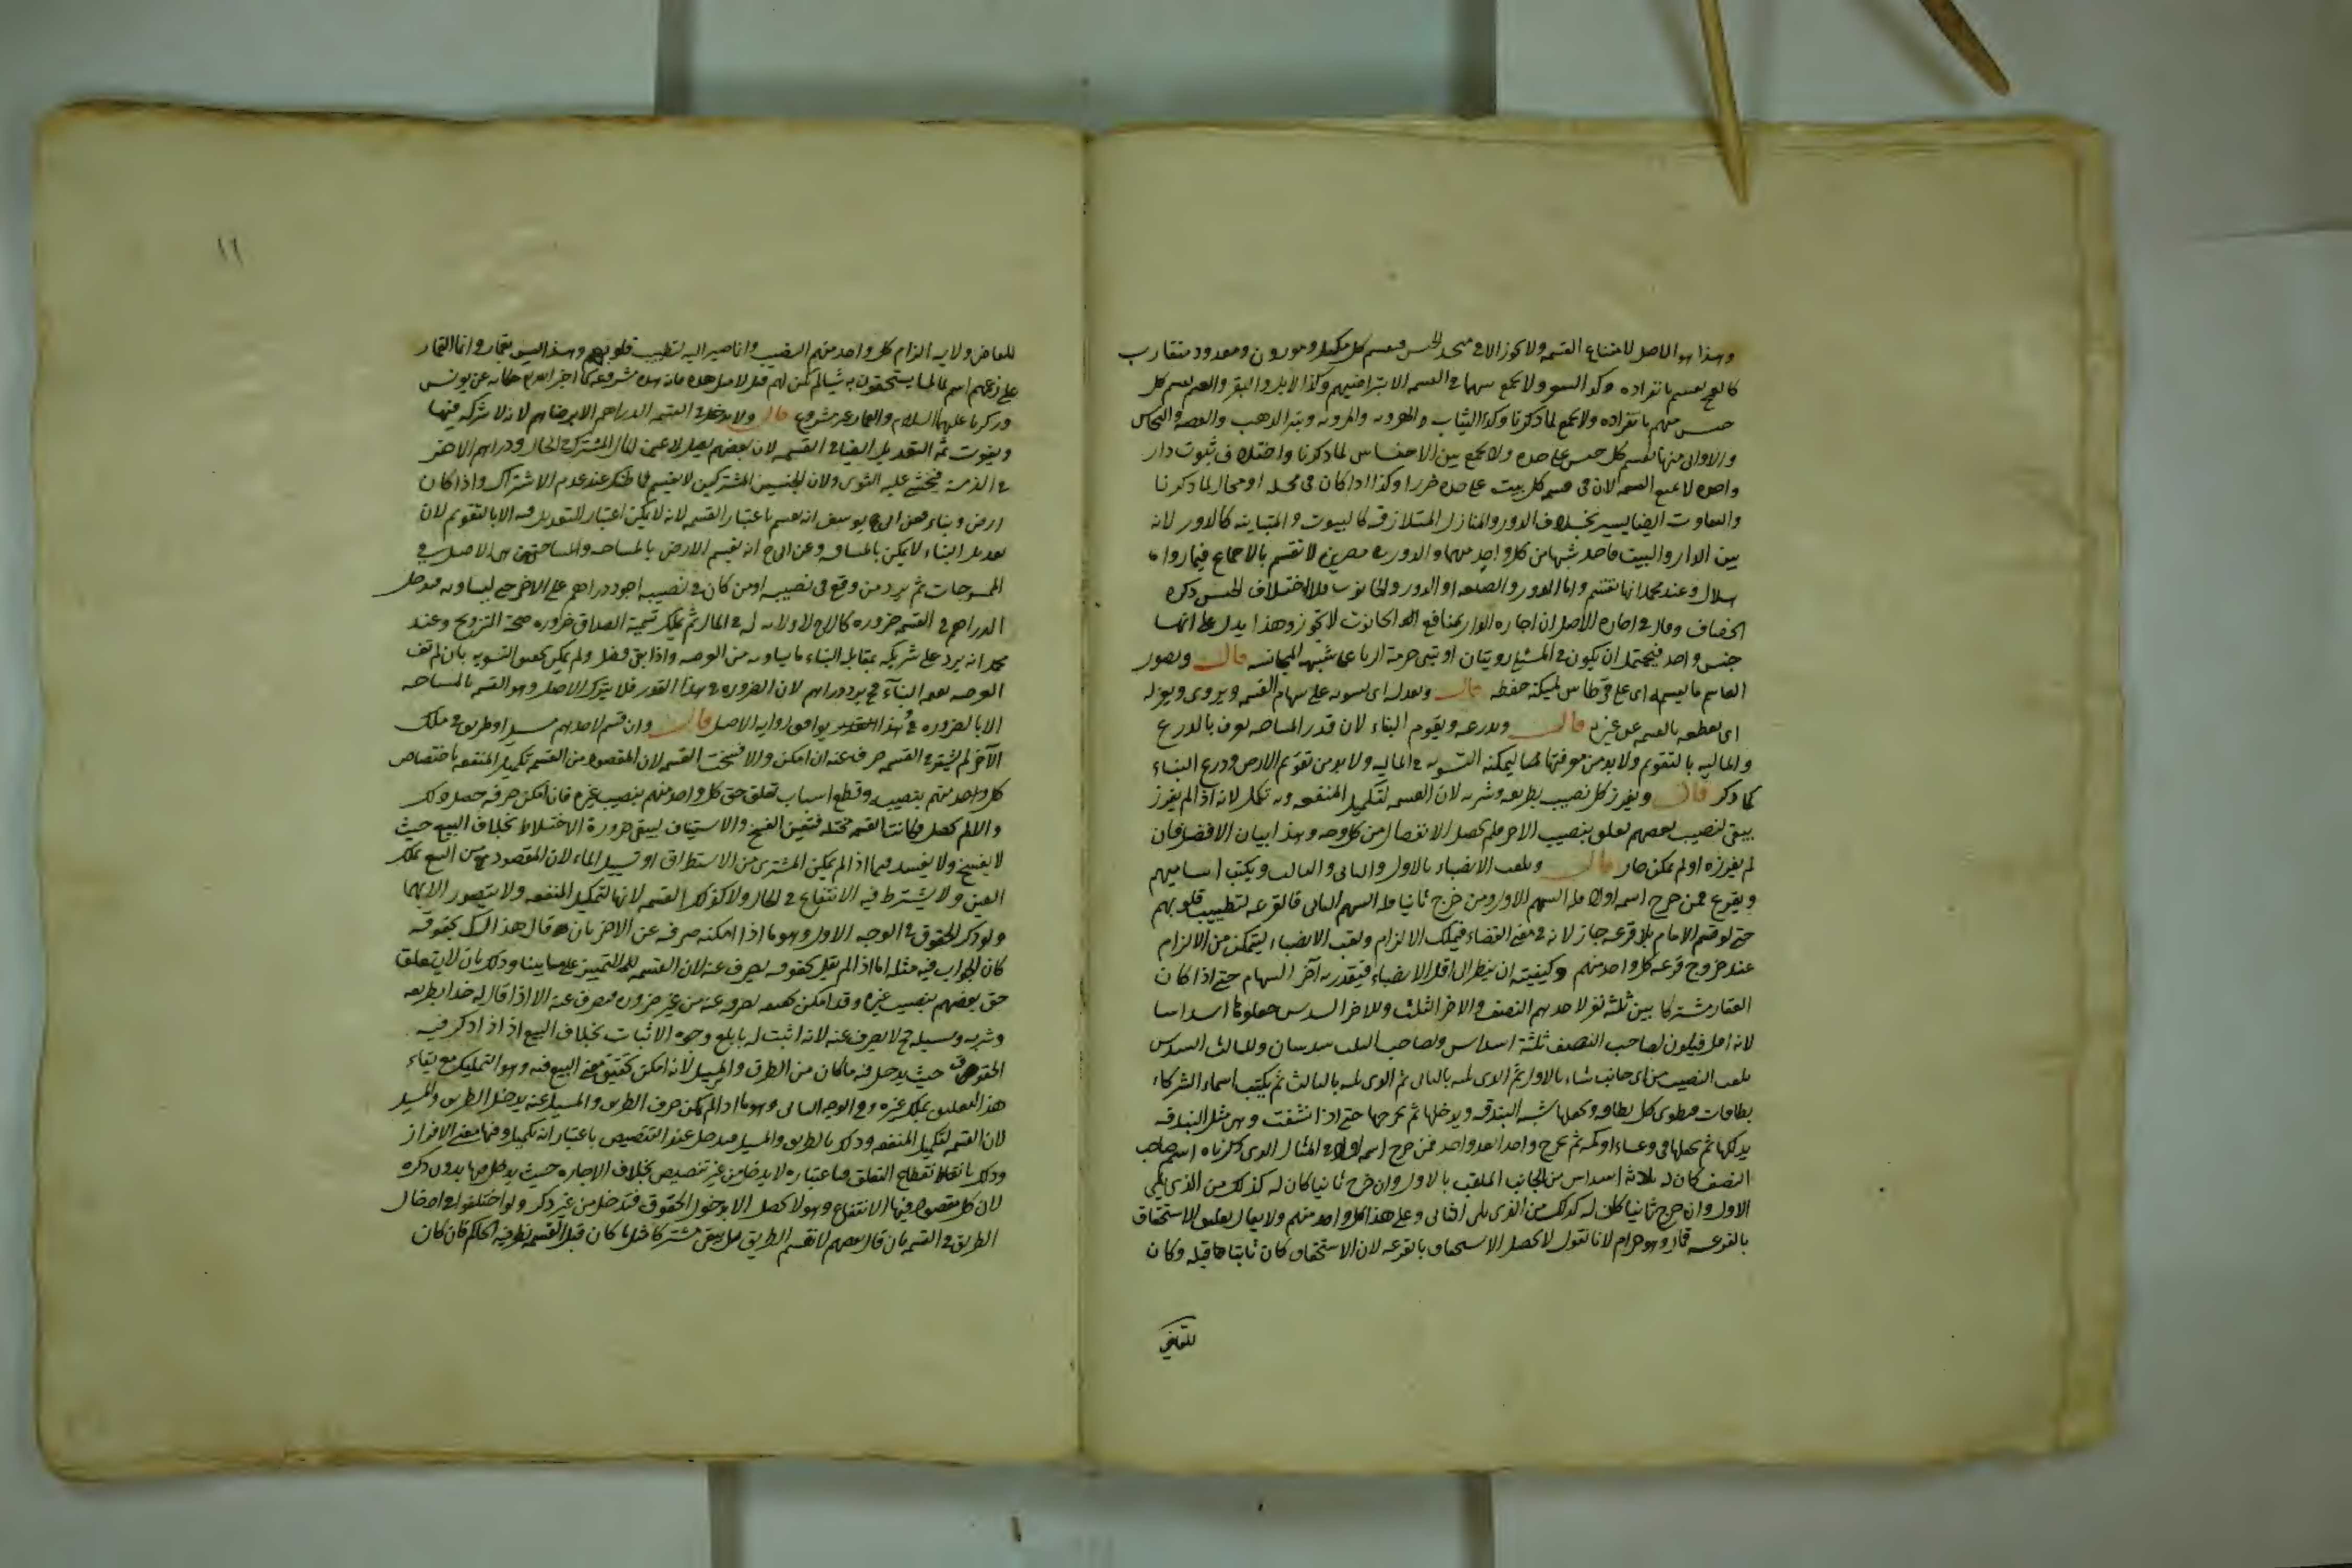 وهذا هو الاصل لامتناع القسمة ولا يجوز الا في متحد الجنس فيقسم كل مكيل وموزون ومعدود متقارب
بانفراده ولا يجمع سهما في القسمة الا بتراضيهم وكذا الابل والبقر والغنم يقسم كل
جنس منهم بانفراده ولا يجمع لما ذكرنا وكذا الثياب وتبر الذهب والفضة والنحاس
والاواني منها يقسم كل جنس على حده ولا يجمع بين الاجناس لما ذكرنا واختلاف بيوت دار
واحده لا يمنع القسمة لان في قسم كل بيت على حده ضررا وكذا اذا كان في محلة او محال لما ذكرنا
والتفاوت ايضا يسير بخلاف الدور والمنازل المتلازقة كالبيوت والمتباينة كالدور لانه
بين الدار والبيت فاخذ شبها من كل واحد منهما والدور في مصرين لا تقسم بالاجماع فيما رواه
هلال وعند محمد انها تقسم واما الدور والضيعة او الدور والحانوت فلاختلاف الجنس ذكره
الخصاف وقال في اجارة الاصل ان اجارة الدار بمنافع الحانوت لا تجوز وهذا يدل على انهما
جنس واحد فيحتمل ان يكون في المسئلة روايتان او تبنى حرمة الربا على شبهة المجانسة قال ويصور
القاسم ما يقسمه اى على قرطاس ليمكنه حفظه قال ويعدله اى يسويه على سهام القسمة ويروى ويعزله
اى يقطعه بالقسمة عن غيره قال ويذرعه ويقوم البناء لان قدر المساحة يعرف بالذرع
والمالية بالتقويم ولا بد من معرفتهما ليمكنه التسوية في المالية ولا بد من تقويم الارض وذرع البناء
كما ذكر قال ويفرز كل نصيب بطريقه وشربه لان القسمة لتكميل المنفعة وبه تكمل لانه اذا لم يفرز
يبقى لنصيب بعضهم تعلق بنصيب الاخر فلم يحصل الانفصال من كل وجه وهذا بيان الافضل فان
لم يفرزه او لم يمكن جاز قال ويلقب الانصباء بالاول والثاني والثالث ويكتب اساميهم
ويقرع فمن خرج اسمه اولا فله السهم الاول ومن خرج ثانيا فله السهم الثاني فالقرعة لتطييب قلوبهم
حتى لو قسم الامام بلا قرعة جاز لانه في معنى القضاء فيملك الالزام ولقب الانصباء ليتمكن من الالزام
عند خروج قرعة كل واحد منهم وكيفيته ان ينظر الى اقل الانصباء فيقدر به آخر السهام حتى اذا كان
العقار مشتركا بين ثلثة نفر لاحدهم النصف وللاخر الثلث وللاخر السدس جعلوها اسداسا
لانه اقل فيكون لصاحب النصف ثلثة اسداس ولصاحب الثلث سدسان وللثالث السدس
يلقب النصيب من اى جانب شاء بالاول ثم الذى يليه بالثاني ثم الذى يليه بالثالث ثم يكتب اسماء الشركاء
بطاقات ويطوى كل بطاقة ويجعلها شبه البندقة ويدخلها ثم يخرجها حتى اذا نشفت وهى مثل البندقة
يدلكها ثم يجعلها في وعاء او كمه ثم يخرج واحدا بعد واحد فمن خرج اسمه اولا في المثال الذى ذكرناه اسم صاحب
النصف كان له ثلاثة اسداس من الجانب الملقب بالاول وان خرج ثانيا كان له كذلك من الذى يلى
الاول وان خرج ثانيا كان له كذلك من الذى يلى الثاني وعلى هذا كل واحد منهم ولا يقال تعليق الاستحقاق
بالقرعة قمار وهو حرام لانا نقول لا يحصل الاستحقاق بالقرعة لان الاستحقاق كان ثابتا قبله وكان
للقاضي
١٦
للقاضى ولاية الزام كل واحد منهم النصيب وانما صير اليه لتطييب قلوبهم وهذا ليس بقمار وانما القمار
على زعمهم اسم لما يستحقون به شيا لم يكن لهم قبل ذلك عن يونس
وزكريا عليهما السلام والقمار غير مشروع قال ولا يدخل في القسمة الدراهم الا برضاهم لانه لا شركة فيها
ويفوت به التعديل ايضا في القسمة لان بعضهم يصل الى عين المال المشترك في الحال ودراهم الاخر
في الذمة فيخشى عليه التوى ولان الجنسين المشتركين لا يقسم فما ظنك عند عدم الاشتراك واذا كان
ارض وبناء فعن ابى يوسف انه يقسم باعتبار القسمة لانه لا يمكن اعتبار التعديل فيه الا بالتقويم لان
تعديل البناء لا يمكن بالمساحة وعن ابى ح انه يقسم الارض بالمساحة والمساحة هى الاصل في
الممسوحات ثم يرد من وقع في نصيبه او من كان نصيبه اجود دراهم على الاخر حتى يساويه فتدخل
الدراهم في القسمة ضرورة كالاخ لا ولاية له في المال ثم يملك تسمية الصداق ضرورة صحة التزويج وعند
محمد انه يرد على شريكه بمقابلة البناء ما يساويه من العرصة واذا بقي فضل ولم يمكن تحقيق التسوية بان لم تف
العرصة بقيمة البناء ح يرد دراهم لان الضرورة في هذا القدر فلا يترك الاصل وهو القسمة بالمساحة
الا بالضرورة وهذا يوافق رواية الاصل قال وان قسم لاحدهم مسيل او طريق في ملك
الآخر لم يشترط في القسمة صرف عنه ان امكن والا فسخت القسمة لان المقصود من القسمة تكميل المنفعة باختصاص
كل واحد منهم بنصيبه وقطع اسباب تعلق حق كل واحد منهم بنصيب غيره فان امكن صرفه حصل ذلك
والا لم يحصل فكانت القسمة مختلة فتعين الفسخ والاستيناف لبقى ضرورة الاختلاط بخلاف البيع حيث
لا يفسخ ولا يفسد فيما اذا لم يمكن المشترى من الاستطراق او تسييل الماء لان المقصود من البيع تملك
العين ولا يشترط فيه الانتفاع في الحال ولا كذلك القسمة لانها لتكميل المنفعة ولا يتصور الا بهما
ولو ذكر الحقوق في الوجه الاول وهو ما اذا امكنه صرفه عن الاخر بان قال هذا لك بحقوقه
كان الجواب فيه مثله اما اذا لم يقل بحقوقه يصرف عنه لان القسمة للتمييز على ما بينا وذلك بان لا يتعلق
حق بعضهم بنصيب غيره وقد امكن بصرفه عنه من غير ضرورة فيصرف عنه الا اذا قال له خذا بطريقه
وشربه ومسيله ح لا يصرف عنه لانه اثبت له بابلغ وجوه الاثبات بخلاف البيع اذا ذكر فيه
الحقوق حيث يدخل فيه ما كان من الطرق والمسيل لانه امكن تحقيق معنى البيع فيه وهو التمليك مع بقاء
هذا التعليق بملك غيره وفي الوجه الثاني وهو ما اذا لم يمكن صرف الطريق والمسيل عنه يدخل الطريق والمسيل
لان القسمة لتكميل المنفعة وذلك بالطريق والمسيل فيدخل عند التنصيص باعتبار انه تكميل وفيها معنى الافراز
وذلك بانقطاع التعلق فباعتباره لا يدخل من غير تنصيص بخلاف الاجارة حيث يدخل فيها بدون ذكره
لان كل مقصود فيها الانتفاع وهو لا يحصل الا بدخول الحقوق فتدخل من غير ذكر ولو اختلفوا في ادخال
الطريق في القسمة بان قال بعضهم لا نقسم الطريق بل يبقى مشتركا مثل ما كان قبل القسمة نظر فيه الحاكم فان كان